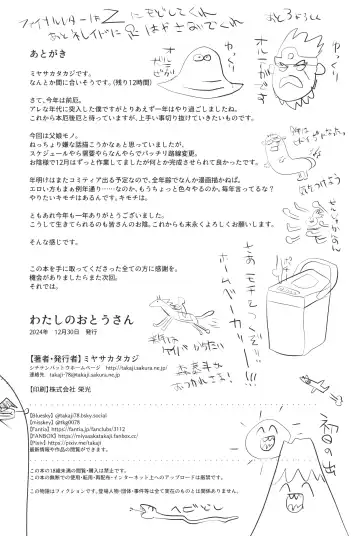 ファイナルソードはZにもどしてくれ
あとがき
ミヤサカタカジです。
なんとか間に合いそうです。(残り12時間)
さて、今年は前厄。
アレな年代に突入した僕ですがとりあえず一年はやり過ごしましたね。
これから本厄後厄と待っていますが、上手い事切り抜けていきたいものです。
今回は父娘モノ。
ねっちょり嫌な話描こうかなぁと思っていましたが、
スケジュールやら需要やらなんやらでバッチリ路線変更。
お陰様で12月はずっと作業してましたが何とか完成させられて良かったです。
年明けはまたコミティア出る予定なので、全年齢でなんか漫画描かねば。
エロい方もまぁ例年通り……なのか、もうちょっと色々やるのか。毎年言ってるな?
やりたいキモチはあるんです。キモチは。
ともあれ今年も一年ありがとうございました。
こうして生きてられるのも皆さんのお陰。これからも末永くよろしくお願いします。
そんな感じです。
この本を手に取ってくださった全ての方に感謝を。
機会がありましたらまた次回。
それでは。
わたしのおとうさん
2024年 12月30日 発行
【著者・発行者】ミヤサカタカジ
シチテンバットウホームページ http://takaji.sakura.ne.jp/
連絡先 takaji-78@takaji.sakura.ne.jp
【印刷】株式会社 栄光
【Bluesky】@takaji78.bsky.social
【misskey】@tkg9078
【Fantia】https://fantia.jp/fanclubs/3112
【FANBOX】https://miyasakatakaji.fanbox.cc/
【Pixiv】https://pixiv.me/takaji
最新情報や作品の閲覧ができます。
この本の18歳未満の閲覧・購入は禁止です。
この本の無断での使用・転用・再配布・インターネット上へのアップロードは厳禁です。
この物語はフィクションです。登場人物・団体・事件等は全て実在のものとは関係ありません。
さあ モチをつくぞ!!
ホームベーカリーで!!!
初日の出
ヘビどし